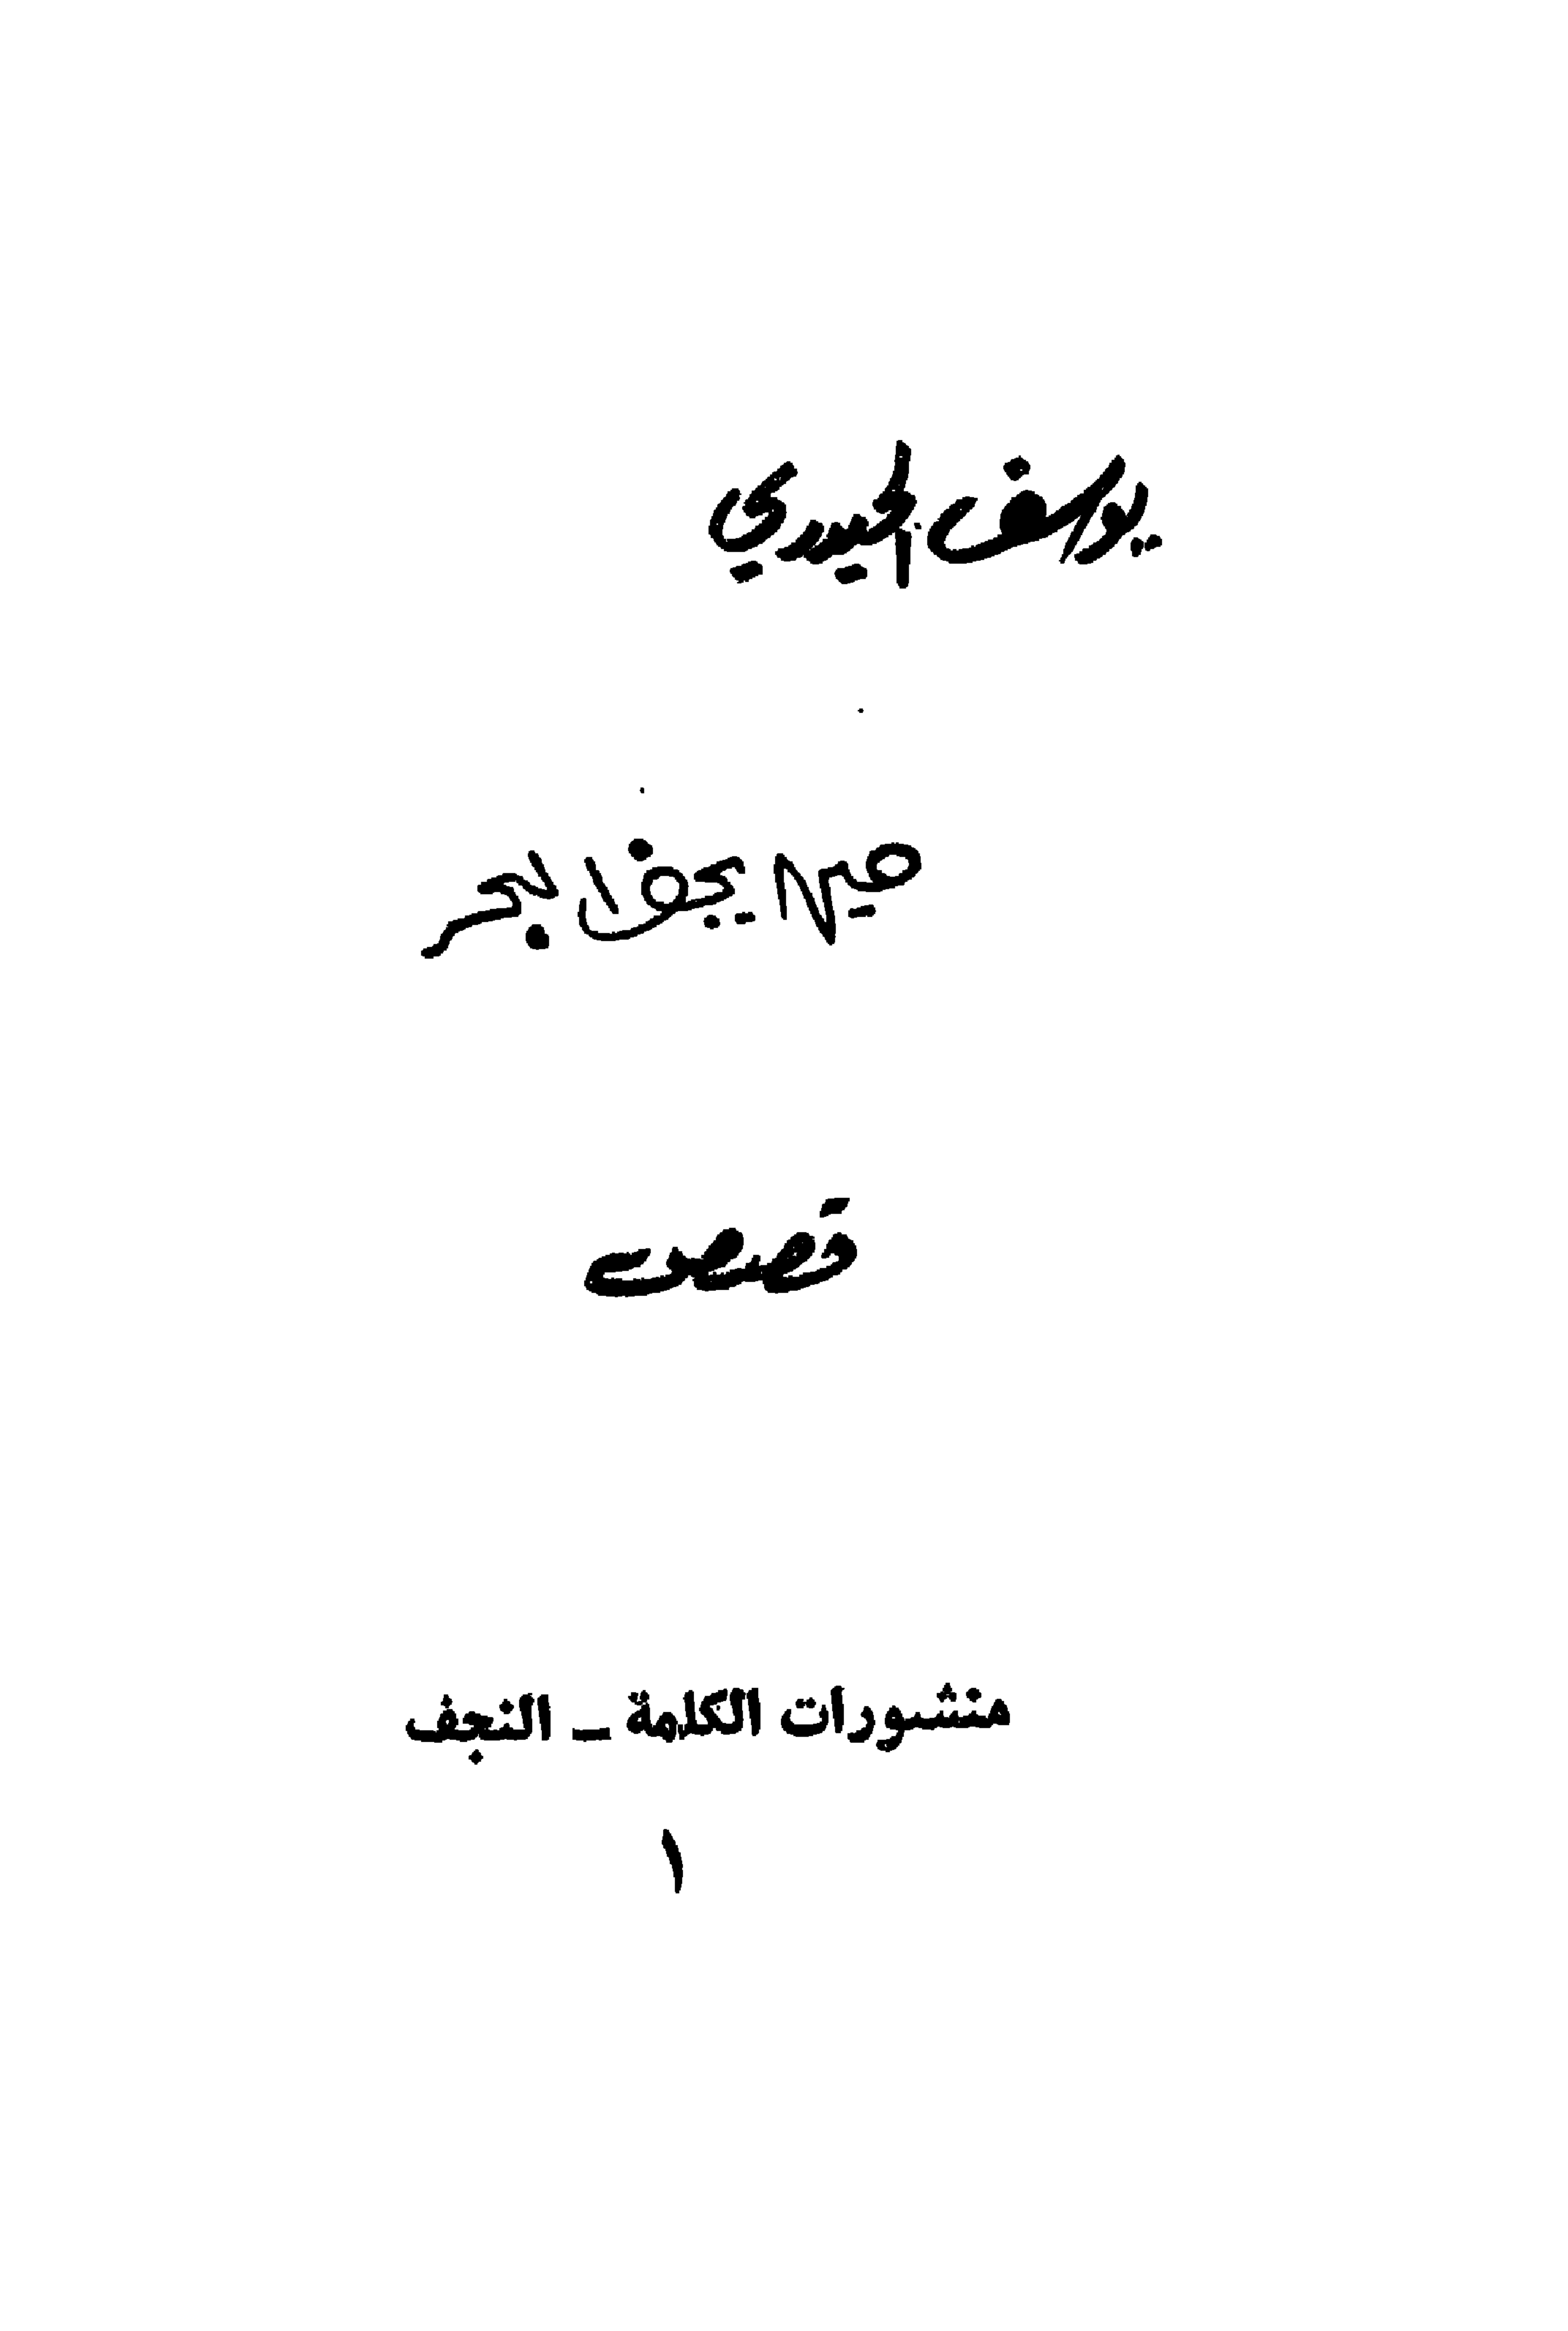 يوسف الحيدري
حين يجف البحر
قصص
منشورات الكلمة ــ النجف
١